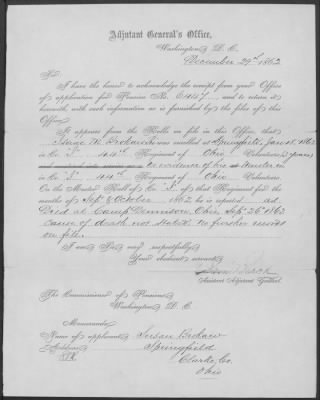 Adjutant General's Office,
Washington, D. C.
December 29th, 1862
Sir:
I have the honor to acknowledge the receipt from your Office
of application for Pension No. and to return it
herewith with such information as is furnished by the files of this
Office.
It appears from the Rolls on file in this Office, that
George W. was enrolled at Springfield, 1862
in Co. 44th Regiment of Ohio Volunteers 3 years
no evidence of his Muster in
in Co. 44th Regiment of Ohio Volunteers
On the Muster Roll of Co. of that Regiment for the
months of Sept & October 1862, he is reported
Died at Camp Dennison, Ohio, Sept 26 1862
cause of death not stated. No further record
on file.
I am Sir very respectfully
Your obedient servant
Assistant Adjutant General.
The Commissioner of Pensions
Washington, D. C.
Memoranda
Name of applicant, Susan
Address, Springfield
Clarke, Co.
Ohio